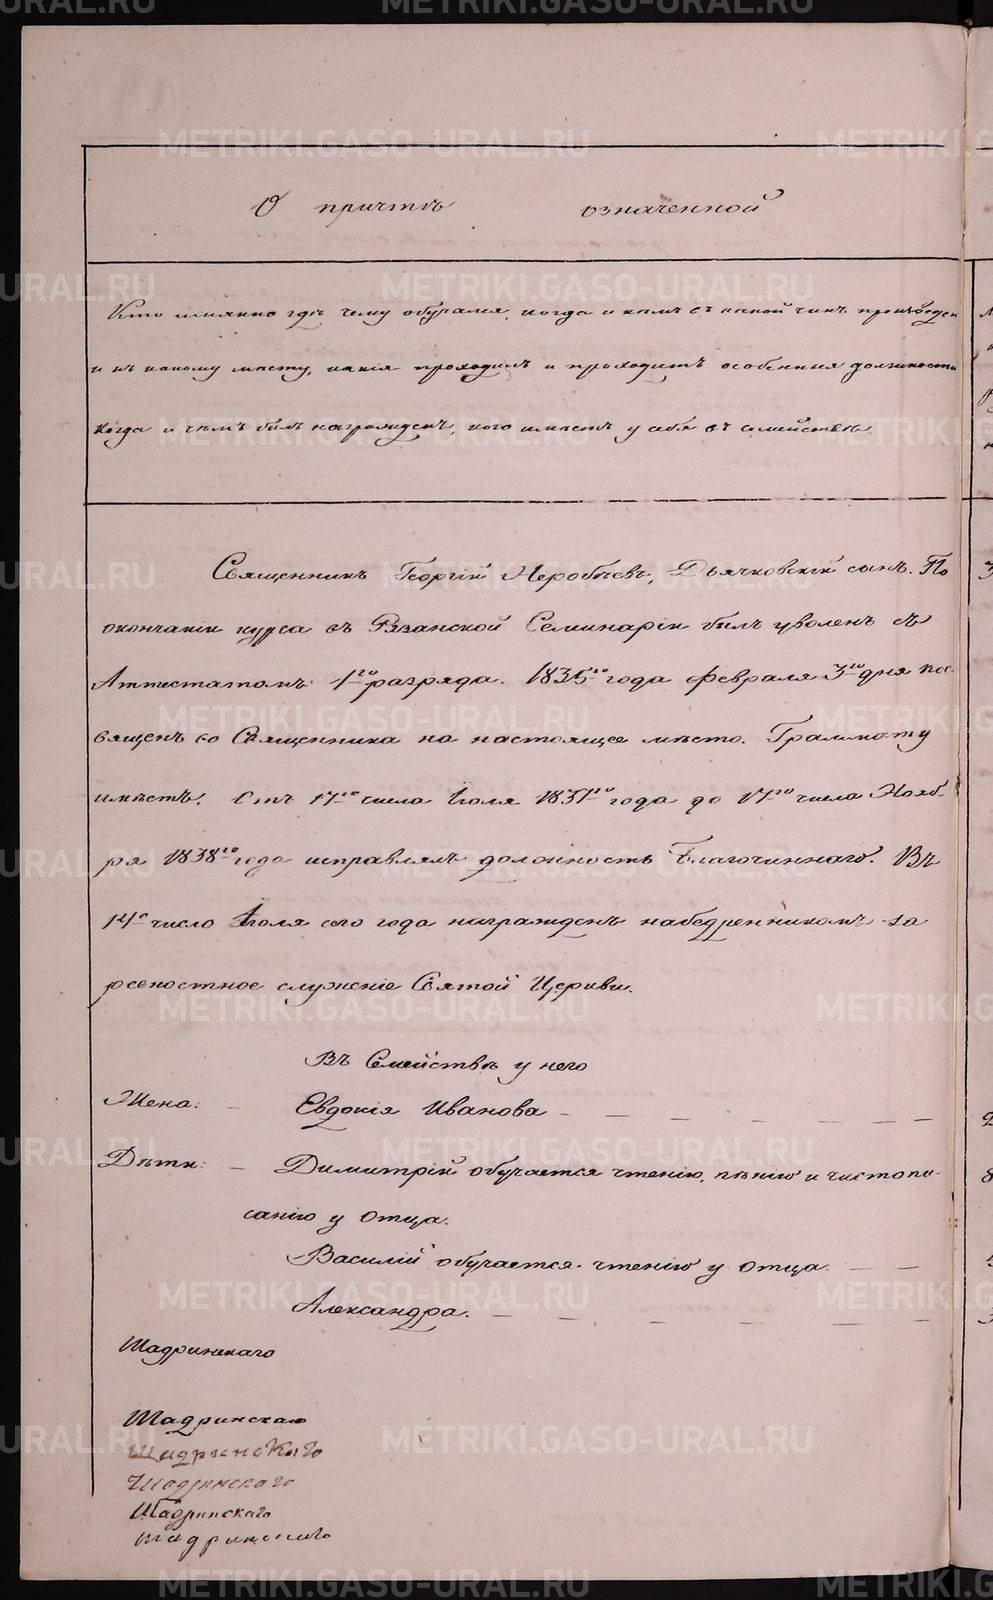 О причтѣ означенной
Кто имянно гдѣ чему обучался, когда и кѣмъ въ какой чинъ произведен
и къ какому мѣсту, какія проходилъ и проходитъ особенныя должности
когда и чѣмъ былъ награжденъ, кого имѣетъ у себя въ семействѣ.
Священникъ Георгій Неробѣевъ, Дьячковскій сынъ. По
окончаніи курса въ Рязанской Семинаріи былъ уволенъ съ
Аттестатомъ 1го разряда. 1835го года февраля 3го дня пос-
вященъ во Священника на настоящее мѣсто. Граммоту
имѣетъ. Отъ 17го числа Іюля 1837го года до 17го числа Нояб-
ря 1838го года исправлялъ должность Благочиннаго. Въ
14е число Іюля сего года награжденъ набедренникомъ за
ревностное служеніе Святой Церкви.
Въ Семействѣ у него
Жена: Евдокія Иванова
Дѣти: Димитрій обучается чтенію, пѣнію и чистопи-
санію у отца.
Василій обучается чтенію у отца.
Александра.
Шадринскаго
Шадринскаго
Шадринскаго
Шадринскаго
Шадринскаго
Шадринскаго
METRIKI.GASO-URAL.RU